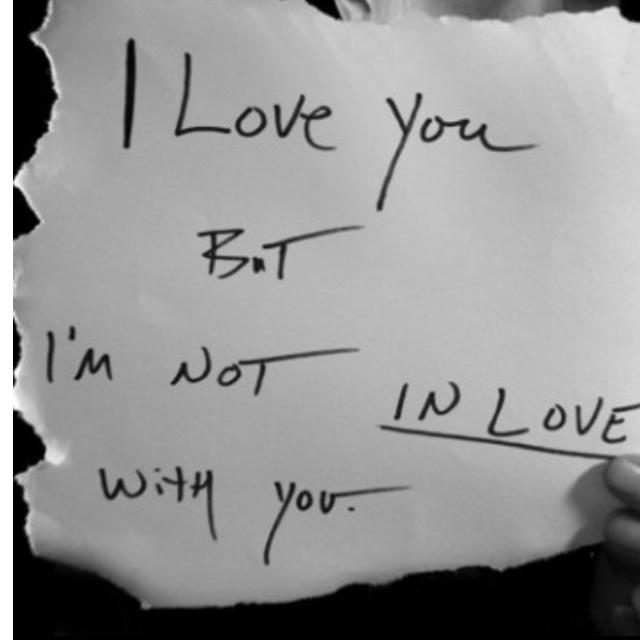 I Love you
But
I'm NOT IN LOVE
With you.